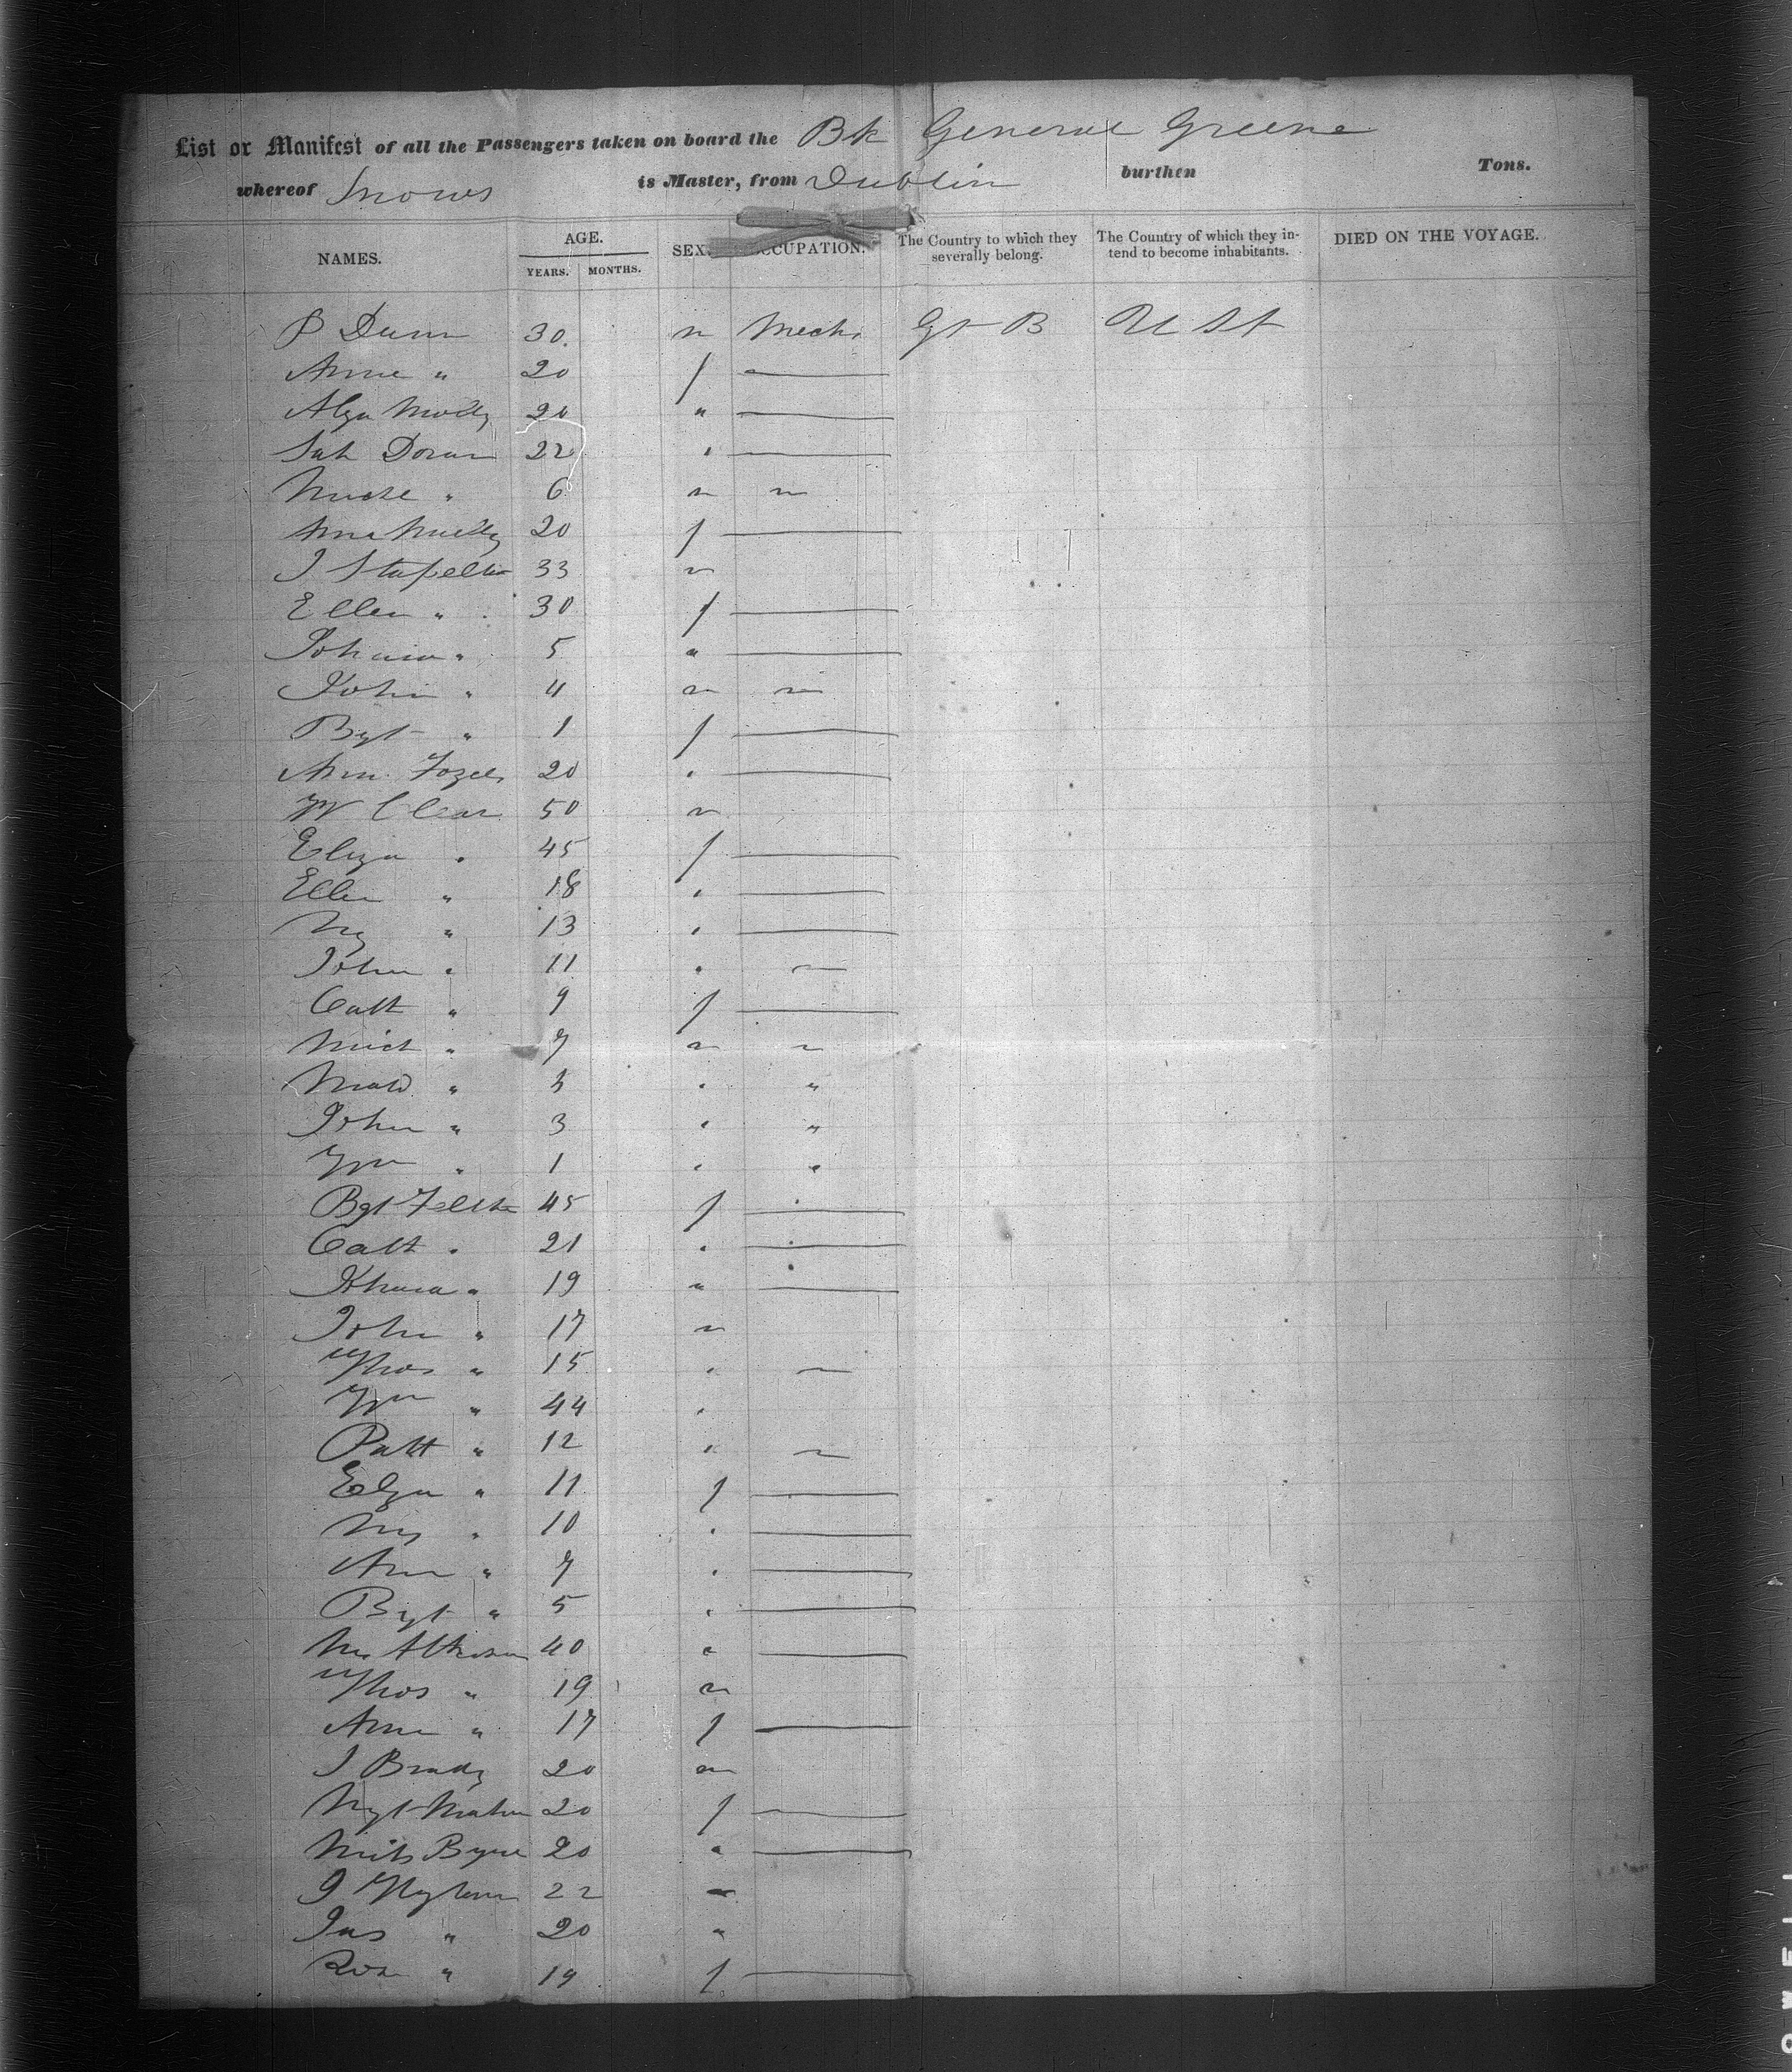 List or Manifest of all the Passengers taken on board the Bk General Greene
whereof Snows is Master, from Dublin burthen Tons.
NAMES. AGE. YEARS. MONTHS. SEX. OCCUPATION. The Country to which they severally belong. The Country of which they intend to become inhabitants. DIED ON THE VOYAGE.
P Dunn 30. m Mech. Gt B U St
Anne " 20 f
20 "
Doran 22 "
" 6 m
Ann 20 f
J Stapelton 33 m
Ellen " 30 f
Johana " 5 "
John " 4 m
Bgt " 1 f
Ann 20 "
W Clear 50 m
Eliza " 45 f
Ellen " 18 "
My " 13 "
John " 11 "
Cath " 9 f
Mich " 7 m
" "
John " 3 " "
Wm " 1 " "
Bgt 45 f
Cath " 21 "
" 19 "
John " 17 m
Thos " 15 "
Wm " 44 "
Patt " 12 "
Eliza " 11 f
My " 10 "
Ann " 7 "
Bgt " 5 "
Atkinson 40 "
Thos " 19 m
Ann " 17 f
J Brady 20 m
Mgt 20 f
Byrne 20 "
22
Jas " 20 "
Rose " 19 f